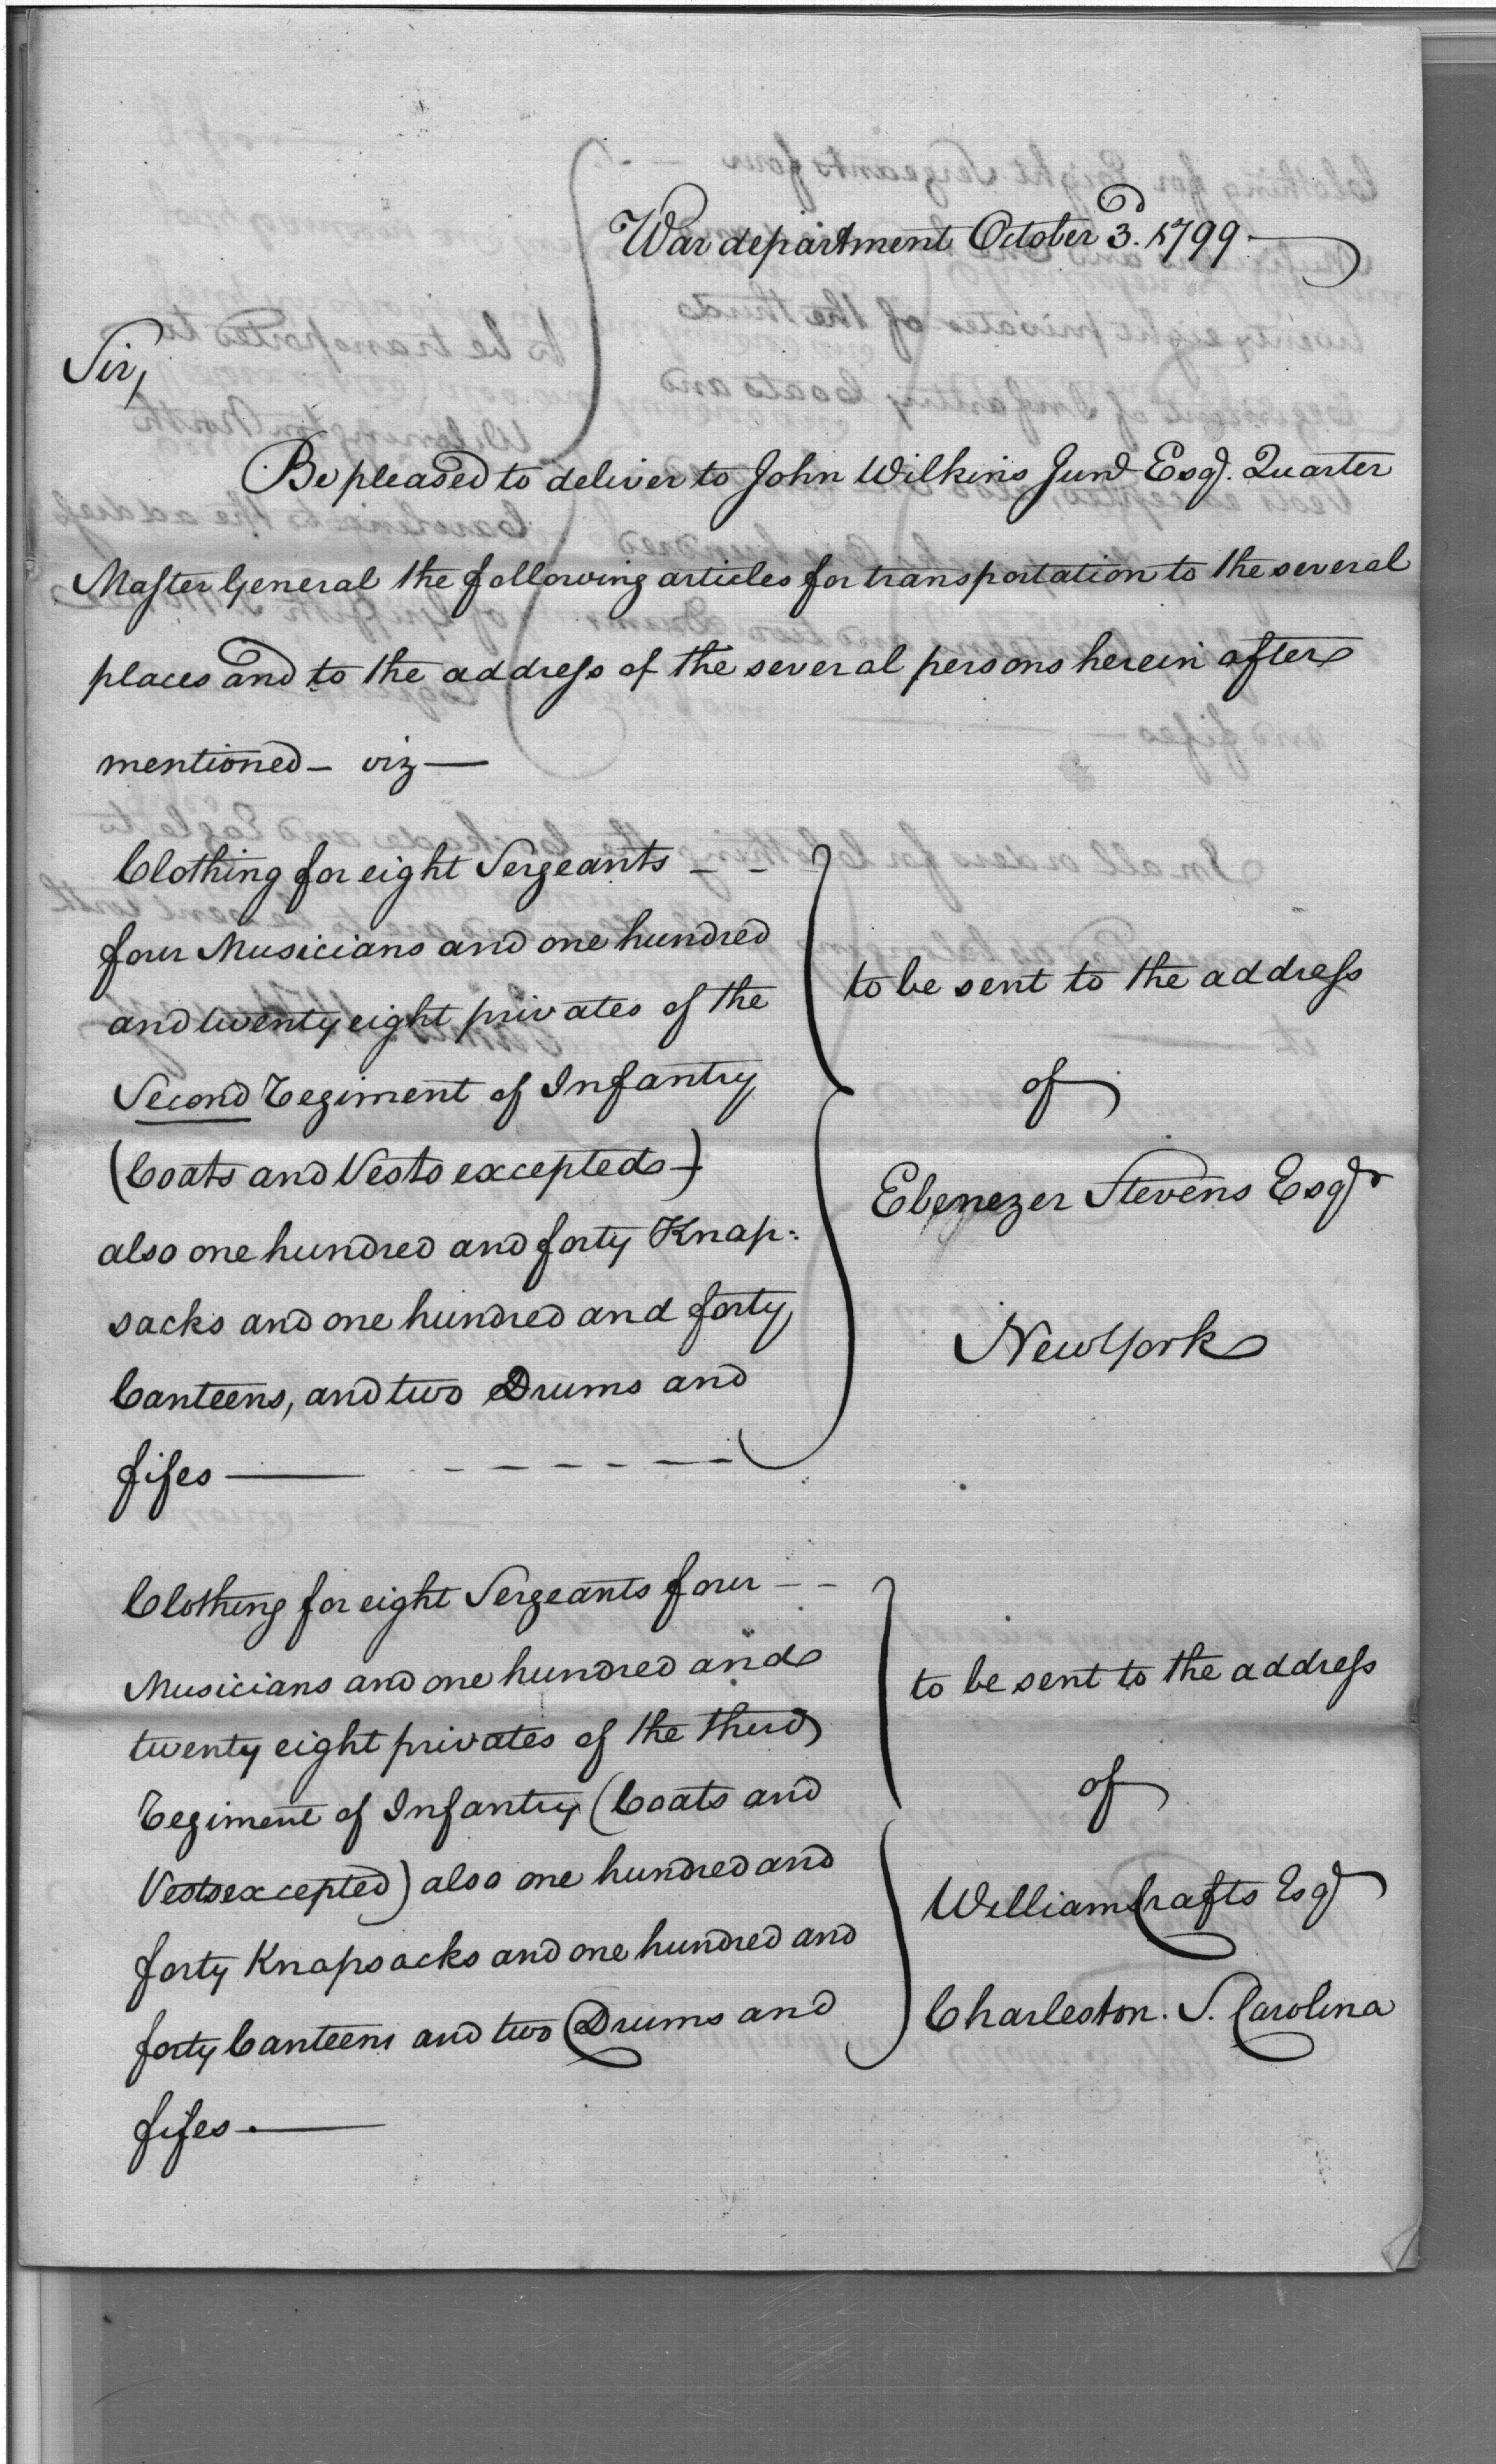 War department October 3d. 1799
Sir,
Be pleased to deliver to John Wilkins Junr Esqr. Quarter
Master General the following articles for transportation to the several
places and to the address of the several persons herein after
mentioned – viz —
Clothing for eight Sergeants - -
four Musicians and one hundred
and twenty eight privates of the
Second Regiment of Infantry
(Coats and Vests excepted)
also one hundred and forty Knap:
sacks and one hundred and forty
Canteens, and two Drums and
fifes — - - - - - -
to be sent to the address
of
Ebenezer Stevens Esqr
New York
Clothing for eight Sergeants four - -
Musicians and one hundred and
twenty eight privates of the third
Regiment of Infantry (Coats and
Vests excepted) also one hundred and
forty Knapsacks and one hundred and
forty Canteens and two Drums and
fifes. —
to be sent to the address
of
William Crafts Esqr
Charleston. S. Carolina